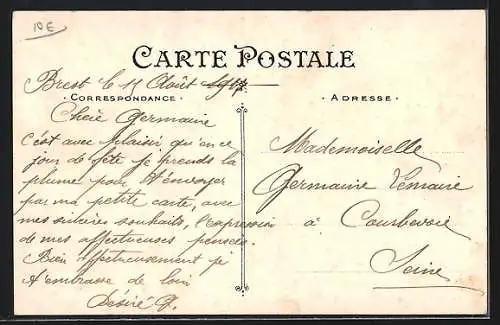 10E
CARTE POSTALE
Brest le 15 Août 1907
CORRESPONDANCE
Cheie Germaine
c'est avec plaisir qu'en ce
jour de fête je prends la
plume pour t'envoyer
par ma petite carte, avec
mes sincères souhaits, l'expression
de mes affectueuses pensées.
Bien affectueusement je
t'embrasse de loin
Desiré
ADRESSE
Mademoiselle
Germaine Lemaire
à Courbevoie
Seine